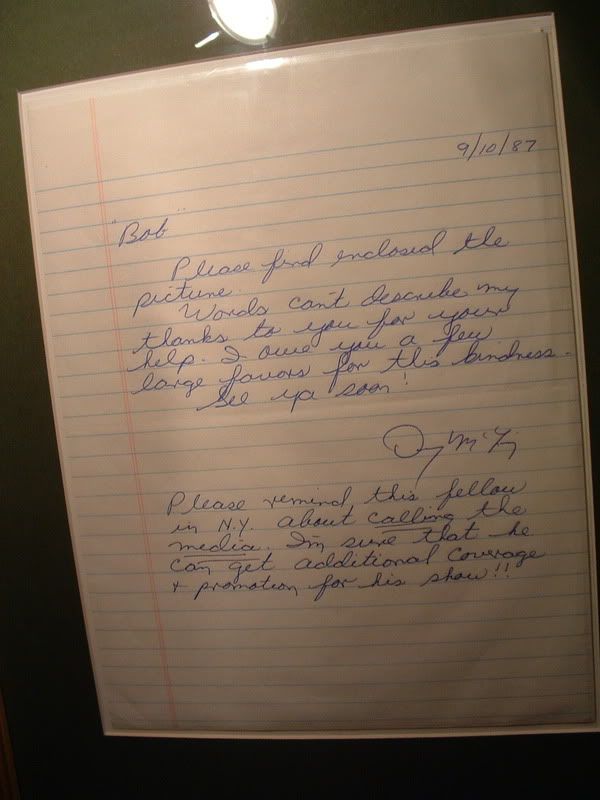 9/10/87
"Bob"
Please find enclosed the
picture.
Words can't describe my
thanks to you for your
help. I owe you a few
large favors for this kindness.
See ya soon!
Please remind this fellow
in N.Y. about calling the
media. I'm sure that he
can get additional coverage
+ promotion for his show!!